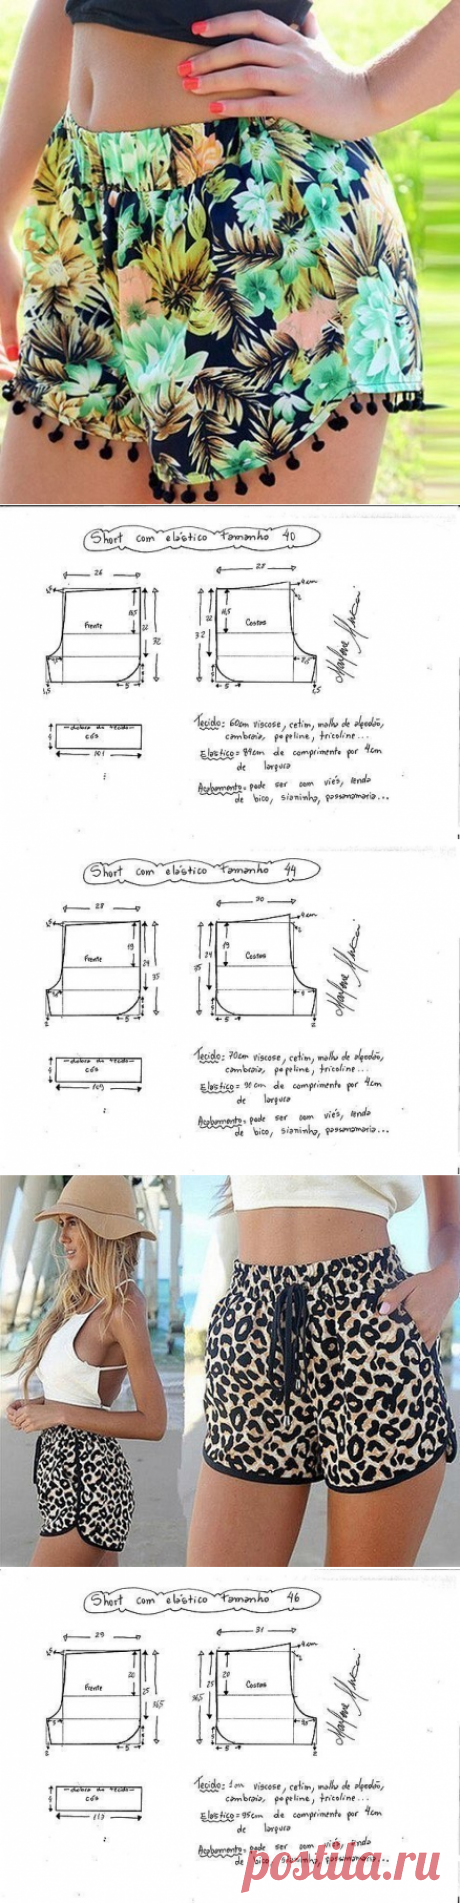 Short com elástico Tamanho 40
26
28
4cm
Frente
Costas
16,5
22
32
32
22
16,5
5
5
1,5
1,5
dobra do tecido
cós
101
Tecido: 60cm viscose, cetim, malha de algodão,
cambraia, popeline, tricoline...
Elástico = 84cm de comprimento por 4cm
de largura
Acabamento: pode ser com viés, renda
de bico, sianinha, passamanaria...
Short com elástico Tamanho 44
28
30
4cm
Frente
Costas
19
24
35
35
24
19
5
5
2
2
dobra do tecido
cós
109
Tecido: 70cm viscose, cetim, malha de algodão,
cambraia, popeline, tricoline...
Elástico = 90cm de comprimento por 4cm
de largura
Acabamento: pode ser com viés, renda
de bico, sianinha, passamanaria...
Short com elástico Tamanho 46
29
31
4cm
Frente
Costas
20
25
36,5
36,5
25
20
5
5
2
2
dobra do tecido
cós
113
Tecido: 1m viscose, cetim, malha de algodão,
cambraia, popeline, tricoline...
Elástico = 95cm de comprimento por 4cm
de largura
Acabamento: pode ser com viés, renda
de bico, sianinha, passamanaria...
postila.ru